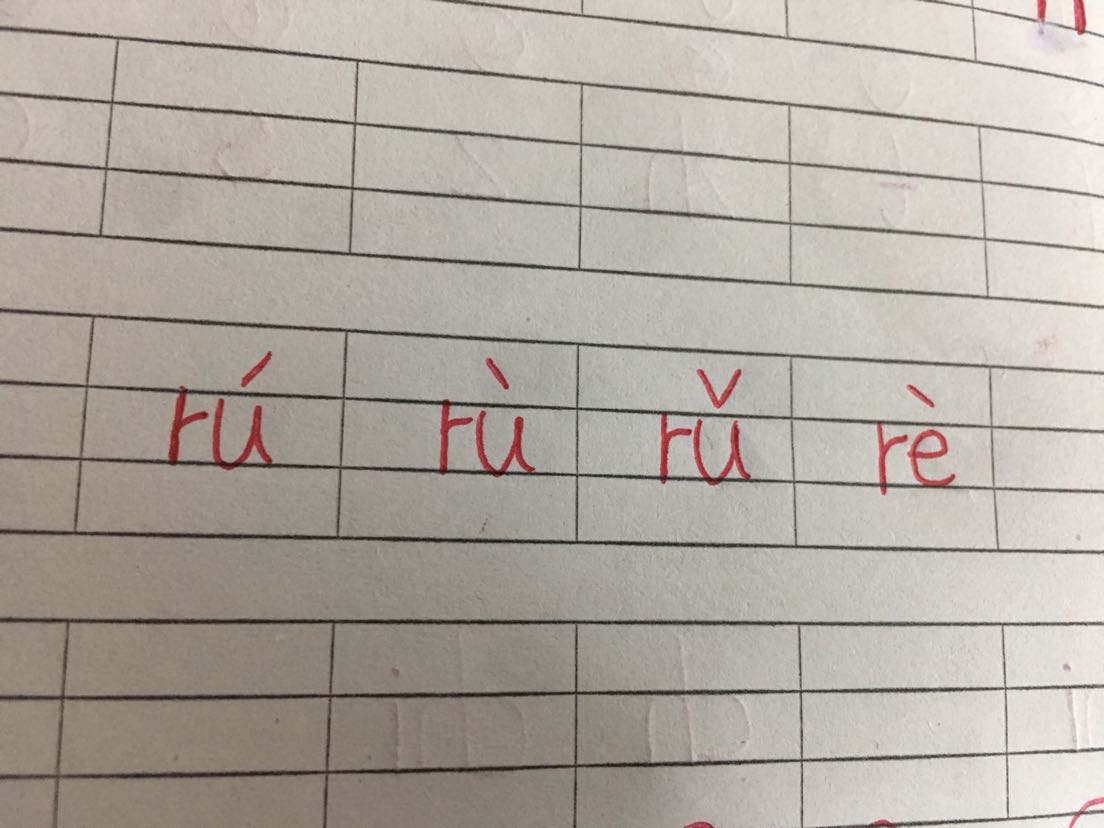 rú rù rǔ rè